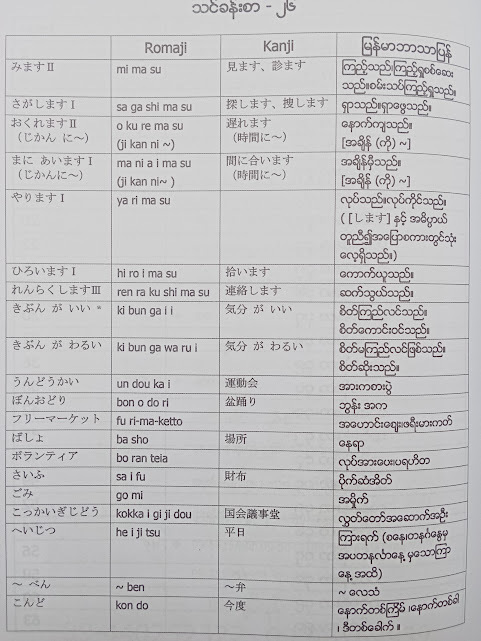 သင်ခန်းစာ - ၂၆
Romaji Kanji မြန်မာဘာသာပြန်
みますⅡ mi ma su 見ます、診ます ကြည့်သည်၊ကြည့်ရှုစစ်ဆေး
သည်။စမ်းသပ်ကြည့်ရှုသည်။
さがしますⅠ sa ga shi ma su 探します、捜します ရှာသည်။ရှာဖွေသည်။
おくれますⅡ o ku re ma su 遅れます နောက်ကျသည်။
(じかん に～) (ji kan ni ~) (時間に～) [အချိန် (ကို) ~]
まに あいますⅠ ma ni a i ma su 間に合います အချိန်မှီသည်။
(じかんに～) (ji kan ni~ ) (時間に～) [အချိန် (ကို) ~]
やりますⅠ ya ri ma su လုပ်သည်။လုပ်ကိုင်သည်။
( [します] နှင့် အဓိပ္ပာယ်
တူညီ၍အပြောစကားတွင်သုံး
လေ့ရှိသည်။)
ひろいますⅠ hi ro i ma su 拾います ကောက်ယူသည်။
れんらくしますⅢ ren ra ku shi ma su 連絡します ဆက်သွယ်သည်။
きぶん が いい * ki bun ga i i 気分 が いい စိတ်ကြည်လင်သည်။
စိတ်ကောင်းဝင်သည်။
きぶん が わるい ki bun ga wa ru i 気分 が わるい စိတ်မကြည်လင်ဖြစ်သည်။
စိတ်ဆိုးသည်။
うんどうかい un dou ka i 運動会 အားကစားပွဲ
ぼんおどり bon o do ri 盆踊り ဘွန်း အက
フリーマーケット fu ri-ma-ketto အဟောင်းဈေး၊ဖရီးမားကတ်
ばしょ ba sho 場所 နေရာ
ボランティア bo ran teia လုပ်အားပေး၊ပရဟိတ
さいふ sa i fu 財布 ပိုက်ဆံအိတ်
ごみ go mi အမှိုက်
こっかいぎじどう kokka i gi ji dou 国会議事堂 လွှတ်တော်အဆောက်အဦး
へいじつ he i ji tsu 平日 ကြားရက် (စနေ၊တနင်္ဂနွေမှ
အပတနင်္လာနေ့ မှသောကြာ
နေ့ အထိ)
～ べん ~ ben ～弁 ~ လေသံ
こんど kon do 今度 နောက်တစ်ကြိမ် ၊နောက်တစ်ခါ
၊ ဒီတစ်ခေါက် ။